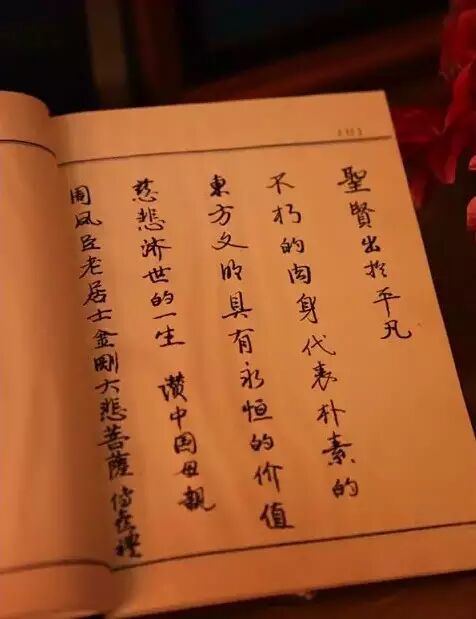 聖賢出於平凡
不朽的肉身代表朴素的
東方文明具有永恒的价值
慈悲济世的一生 中国母親
周凤臣老居士金剛大悲菩薩